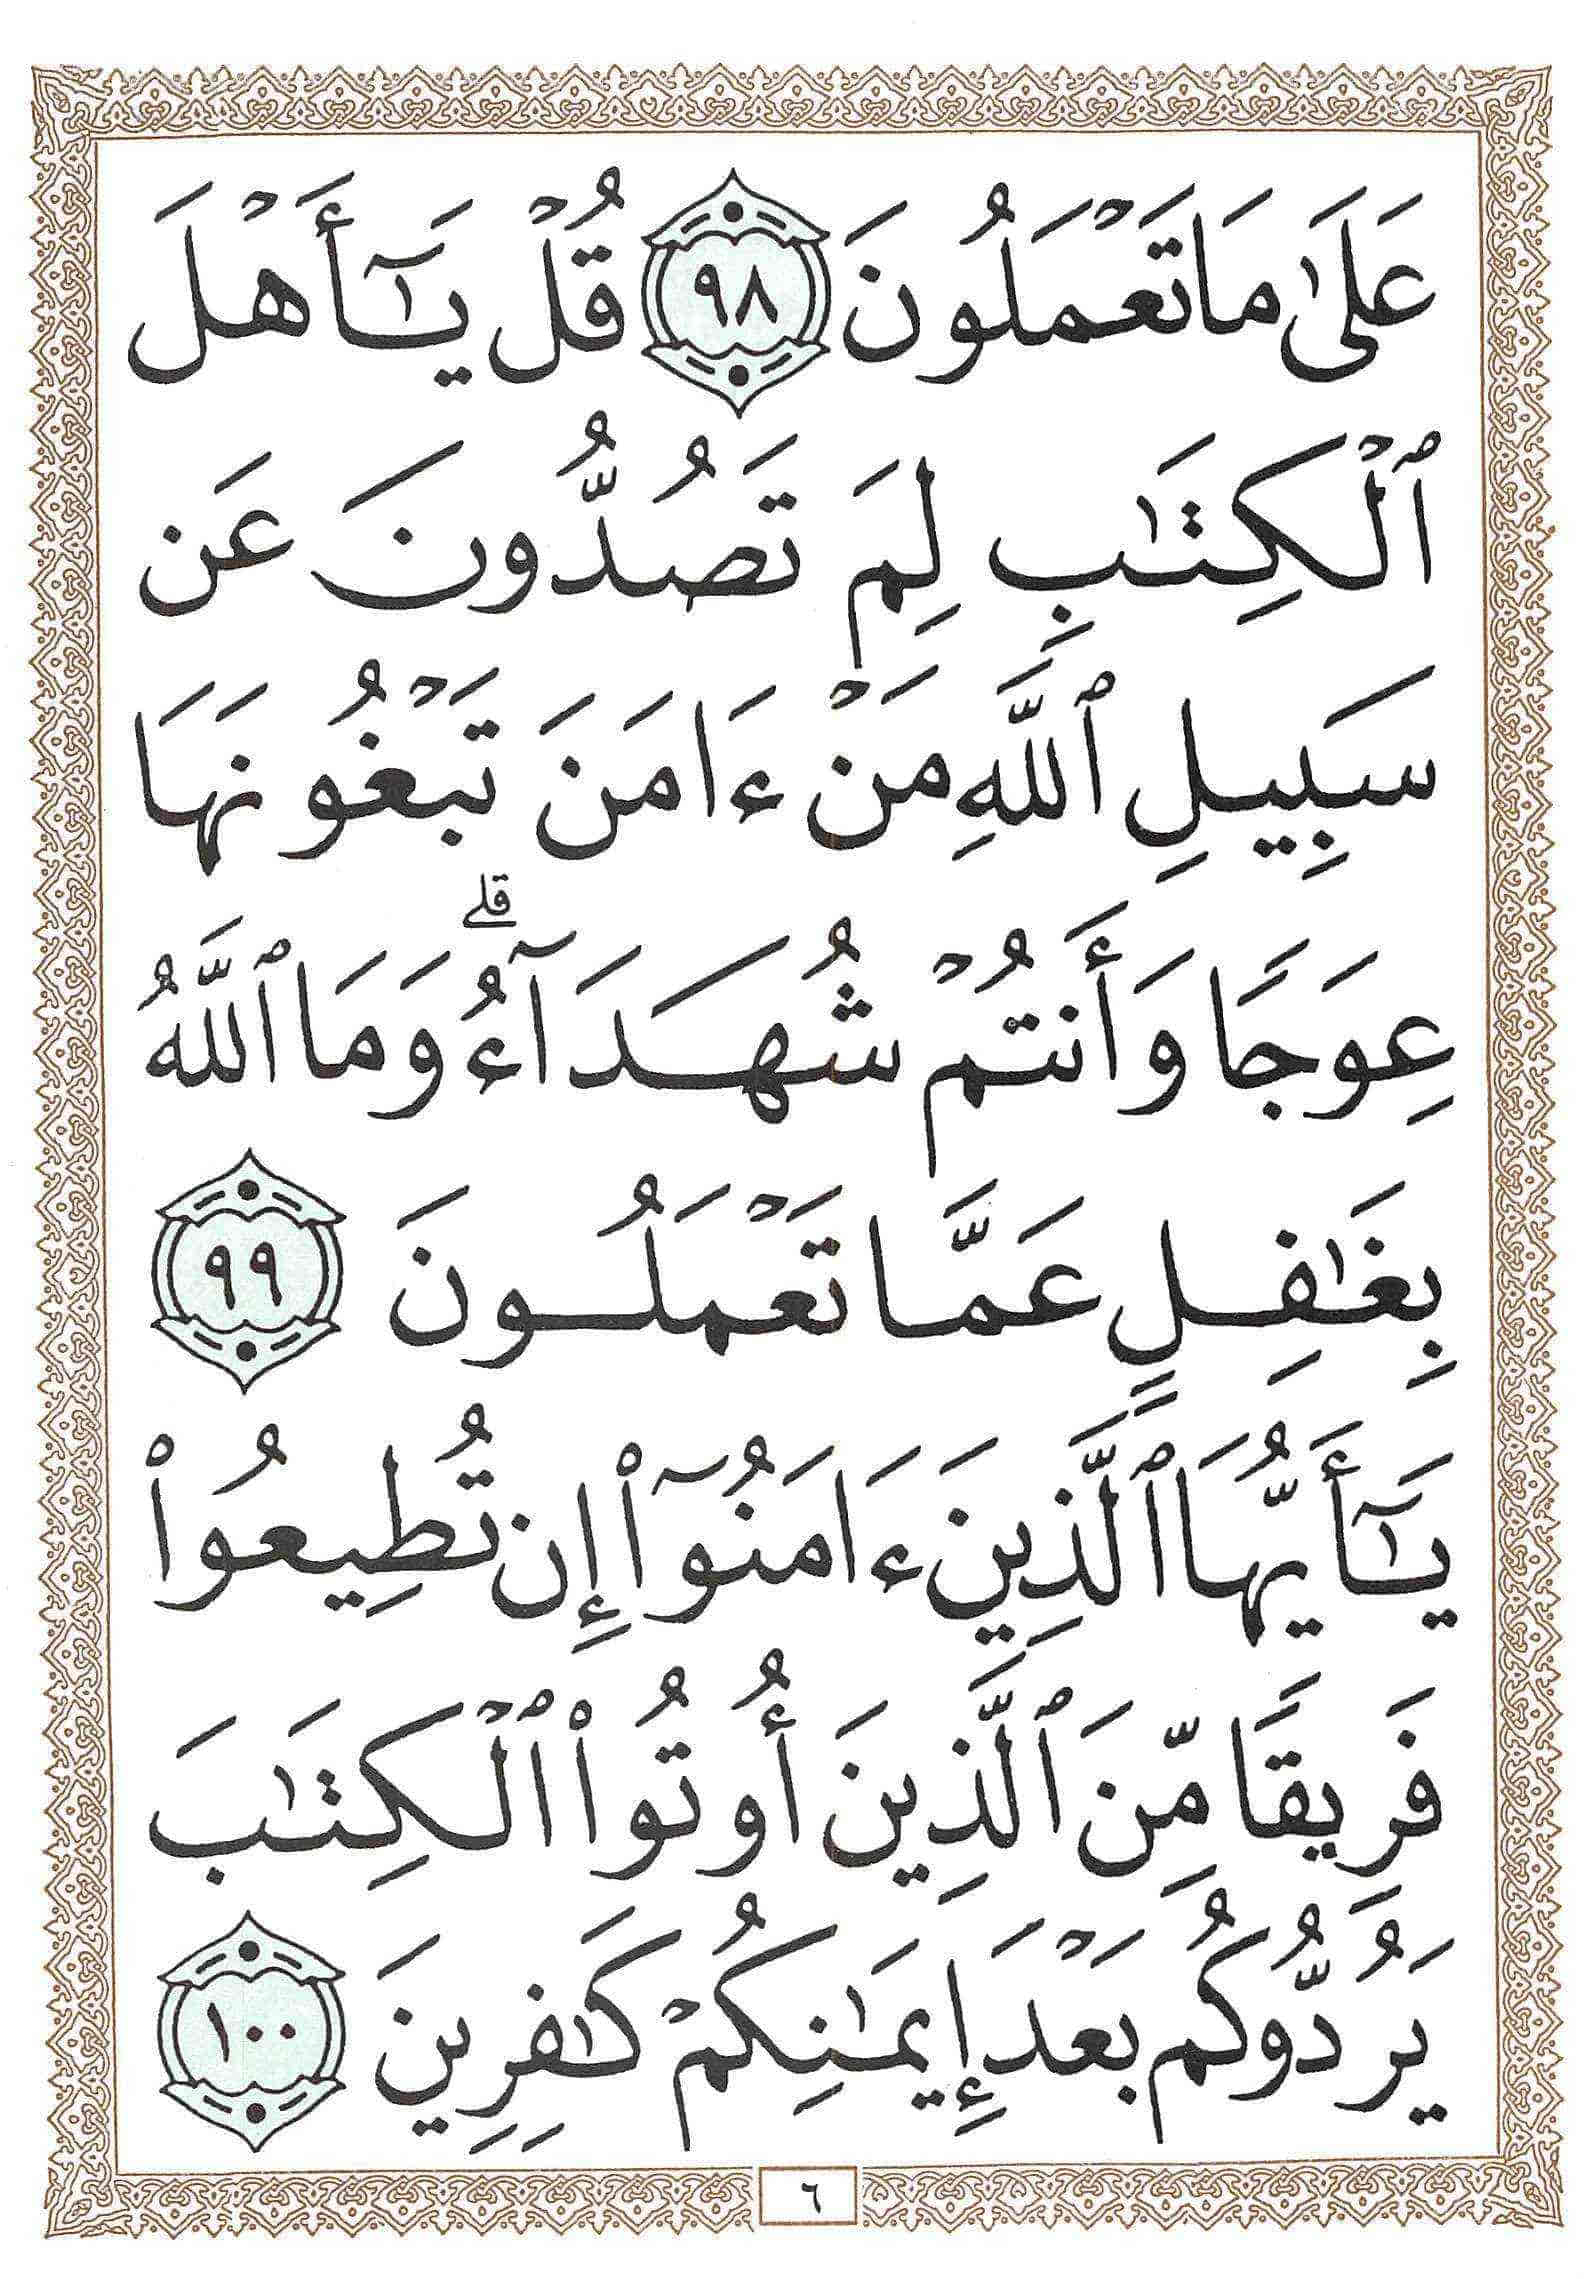 عَلَىٰ مَا تَعْمَلُونَ ٩٨ قُلْ يَـٰٓأَهْلَ
ٱلْكِتَـٰبِ لِمَ تَصُدُّونَ عَن
سَبِيلِ ٱللَّهِ مَنْ ءَامَنَ تَبْغُونَهَا
عِوَجًا وَأَنتُمْ شُهَدَآءُ ۗ وَمَا ٱللَّهُ
بِغَـٰفِلٍ عَمَّا تَعْمَلُونَ ٩٩
يَـٰٓأَيُّهَا ٱلَّذِينَ ءَامَنُوٓا۟ إِن تُطِيعُوا۟
فَرِيقًا مِّنَ ٱلَّذِينَ أُوتُوا۟ ٱلْكِتَـٰبَ
يَرُدُّوكُم بَعْدَ إِيمَـٰنِكُمْ كَـٰفِرِينَ ١٠٠
٦